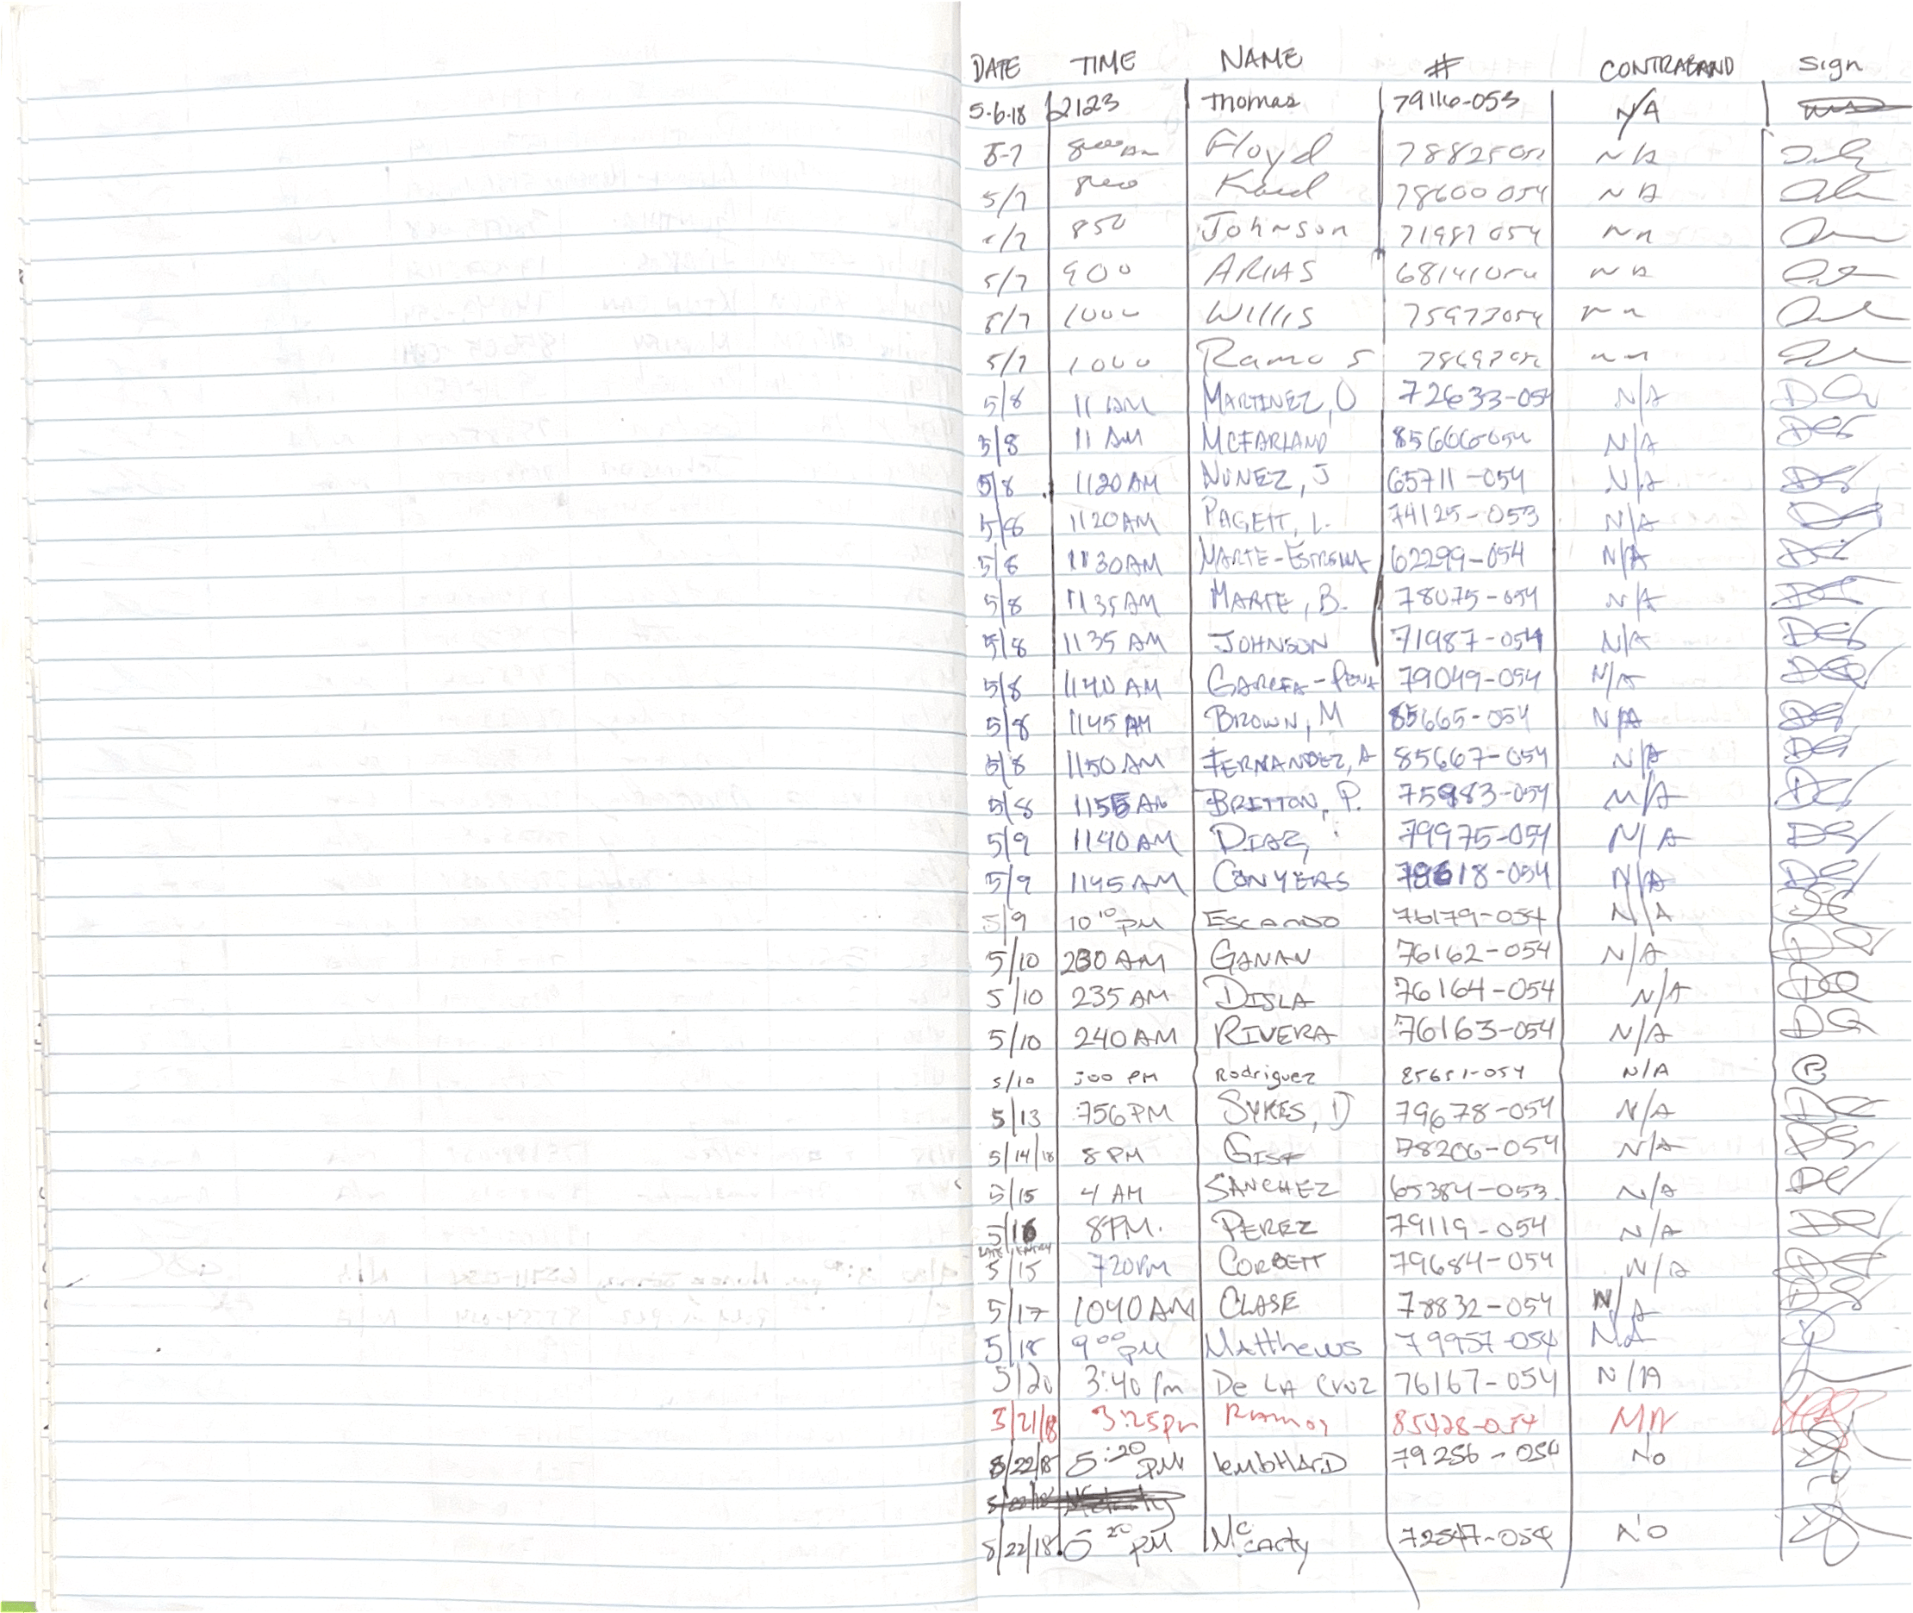 DATE TIME NAME # CONTRABAND Sign
5.6.18 2123 Thomas 79116-053 N/A
5-7 8:00 am Floyd 78825 NA
5/7 800 78600 054 NA
5/7 850 Johnson 71987 054 NA
5/7 900 ARIAS 68141054 NA
5/7 1000 Willis 75977054 NA
5/7 1000 Ramos NA
5/8 11 AM MARTINEZ, O 72633-054 N/A
5/8 11 AM MCFARLAND 85606-054 N/A
5/8 1120 AM NUNEZ, J 65711-054 N/A
5/8 1120 AM PAGETT, L. 74125-053 N/A
5/8 1130 AM MARTE-ESTRELLA 62299-054 N/A
5/8 1135 AM MARTE, B. 78075-054 N/A
5/8 1135 AM JOHNSON 71987-054 N/A
5/8 1140 AM GARCIA-PENA 79049-054 N/A
5/8 1145 AM BROWN, M 85665-054 N/A
5/8 1150 AM FERNANDEZ, A 85667-054 N/A
5/8 1155 AM BRITTON, P. 75983-054 N/A
5/9 1140 AM DIAZ, 79975-054 N/A
5/9 1145 AM CONYERS 79618-054 N/A
5/9 10 10 PM ESCANDO 76179-054 N/A
5/10 230 AM GANAN 76162-054 N/A
5/10 235 AM DISLA 76164-054 N/A
5/10 240 AM RIVERA 76163-054 N/A
5/10 300 PM Rodriguez 85651-054 N/A
5/13 756 PM SYKES, D 79678-054 N/A
5/14/18 8 PM GIST 78206-054 N/A
5/15 4 AM SANCHEZ 65384-053 N/A
5/16 8 PM. PEREZ 79119-054 N/A
LATE ENTRY
5/15 720 PM CORBETT 79684-054 N/A
5/17 1040 AM CLASE 78832-054 N/A
5/18 9 00 PM MATTHEWS 79957-054 N/A
5/20 3:40 Pm De LA CRUZ 76167-054 N/A
5/21/18 3:25pm Ramos 85428-054 N/A
5/22/18 5:20 PM LembHARD 79256-054 NO
5/22/18 5 20 PM McCarty 72547-054 NO